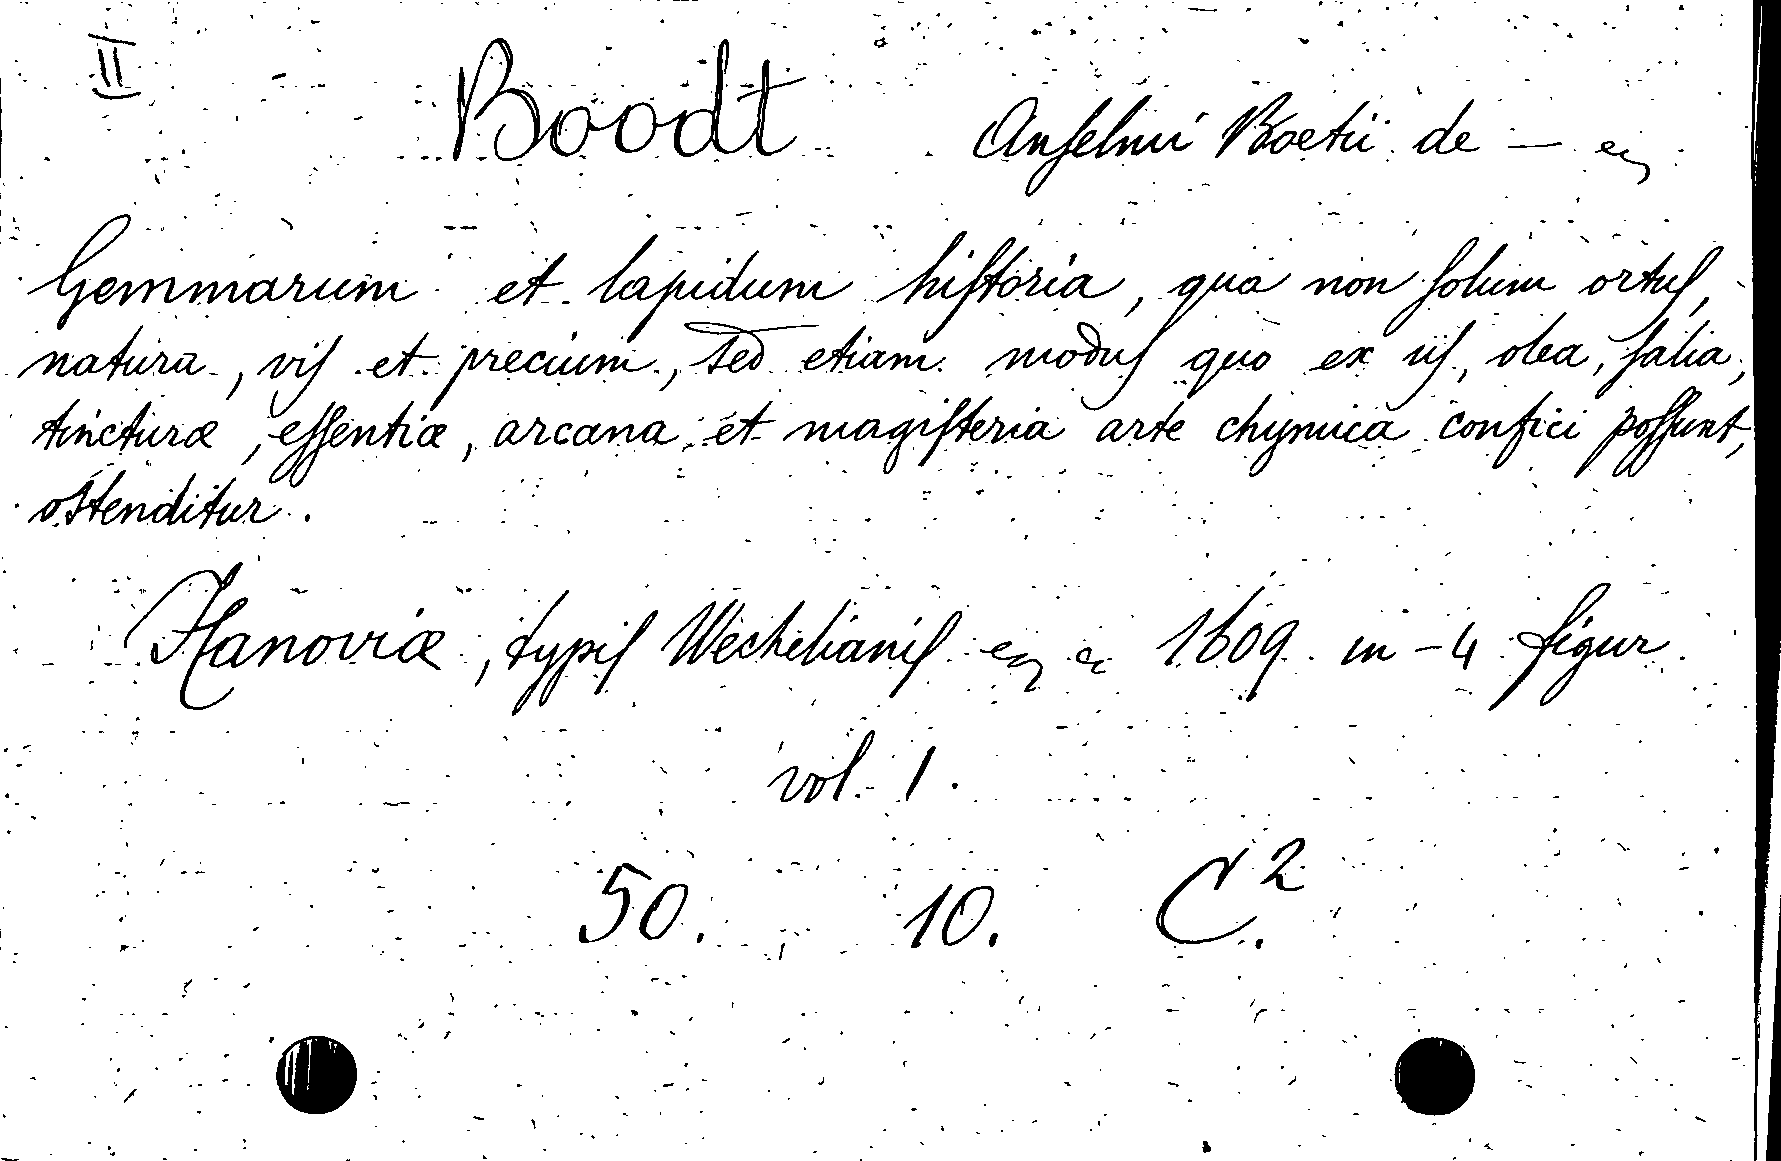 II
Boodt Anſelmi Boetii de — &
Gemmarum et lapidum hiſtoria, qua non ſolum ortuſ,
natura, viſ et precium, sed etiam moduſ quo ex iiſ, olea, ſalia,
tincturæ, eſſentiæ, arcana et magiſteria arte chymica confici poſſunt,
ostenditur.
Hanoviæ, typiſ Wechelianiſ & c 1609. in-4 figur.
vol. 1.
50. 10. C.²